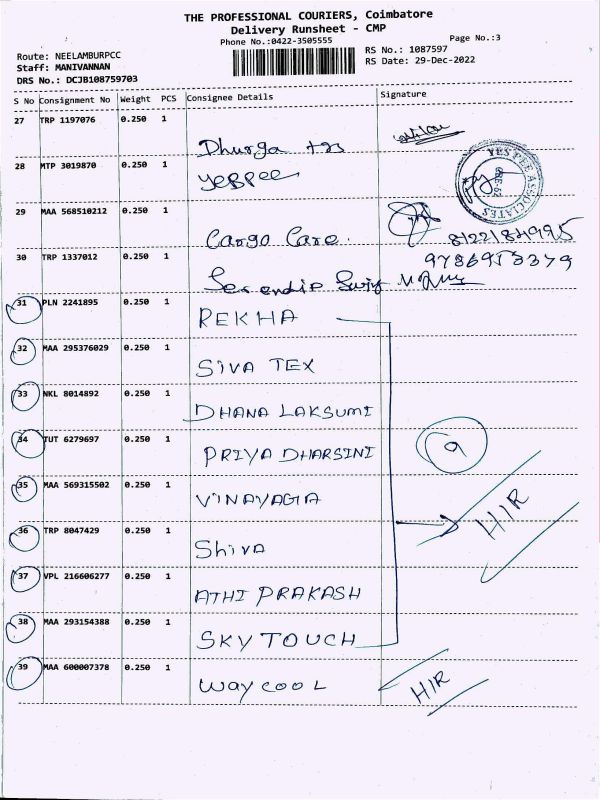 THE PROFESSIONAL COURIERS, Coimbatore
Delivery Runsheet - CMP
Phone No.:0422-3505555 Page No.:3
Route: NEELAMBURPCC RS No.: 1087597
Staff: MANIVANNAN RS Date: 29-Dec-2022
DRS No.: DCJB108759703
S No Consignment No Weight PCS Consignee Details Signature
27 TRP 1197076 0.250 1 Dhurga
28 MTP 3019870 0.250 1 yeppee YES PEE ASSOCIATES
29 MAA 568510212 0.250 1 Cargo Care. 8122184995
30 TRP 1337012 0.250 1 9786953379
31 PLN 2241895 0.250 1 REKHA
32 MAA 295376029 0.250 1 SIVA TEX
33 NKL 8014892 0.250 1 DHANA LAKSUMI
34 TUT 6279697 0.250 1 PRIYA DHARSINI 9
35 MAA 569315502 0.250 1 VINAYAGA
36 TRP 8047429 0.250 1 Shiva HIR
37 VPL 216606277 0.250 1 ATHI PRAKASH
38 MAA 293154388 0.250 1 SKY TOUCH
39 MAA 600007378 0.250 1 way cool HIR